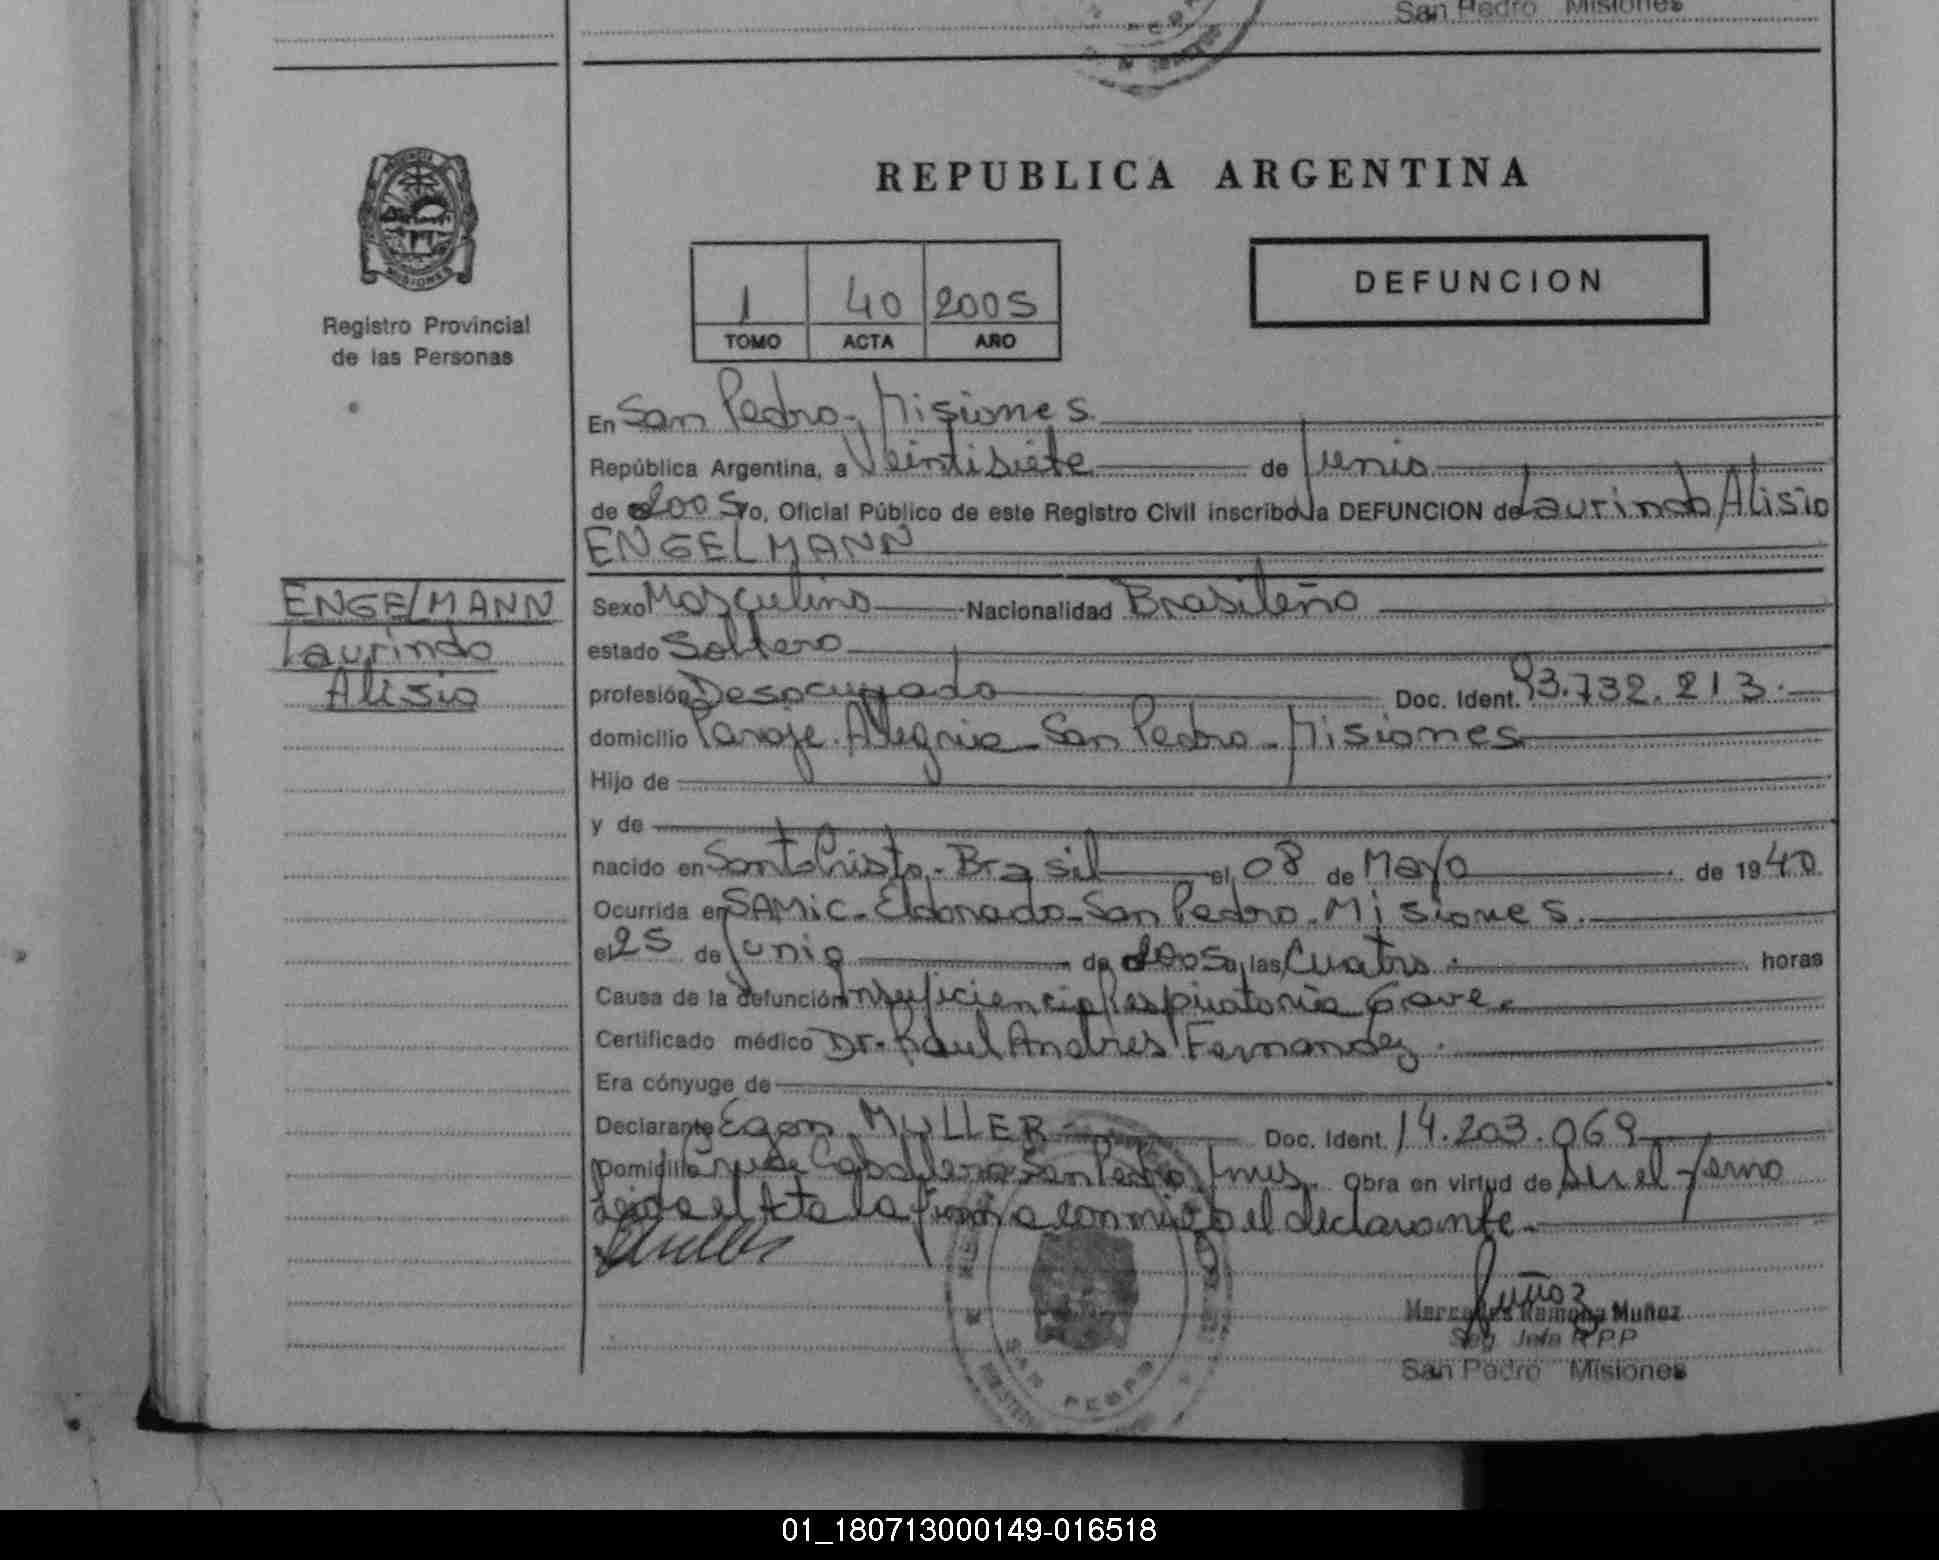 San Pedro Misiones
REPUBLICA ARGENTINA
DEFUNCION
1 40 2005
TOMO ACTA AÑO
Registro Provincial
de las Personas
En San Pedro. Misiones.
República Argentina, a Veintisiete de Junio
de 2005 Yo, Oficial Público de este Registro Civil inscribo la DEFUNCION de Laurindo Alisio
ENGELMANN
ENGELMANN
Laurindo
Alisio
Sexo Masculino Nacionalidad Brasileño
estado Soltero
profesión Desocupado Doc. Ident. 93.732.213.
domicilio Paraje Alegria San Pedro - Misiones
Hijo de
y de
nacido en Santo Cristo - Brasil el 08 de Mayo de 1940
Ocurrida en SAMIC - Eldorado - San Pedro. Misiones.
el 25 de Junio de 2005 a las Cuatro horas
Causa de la defunción Insuficiencia Respiratoria Grave.
Certificado médico Dr. Raul Andres Fernandez.
Era cónyuge de
Declarante Egon MULLER Doc. Ident. 14.203.069
Domicilio Cruce Caballero San Pedro, Mnes. Obra en virtud de Ser el Yerno
Leida el Acta la firma conmigo el declarante.
Muñoz
Mercedes Ramona Muñoz
Seg. Jefa R.P.P
San Pedro Misiones
SAN PEDRO
01_180713000149-016518